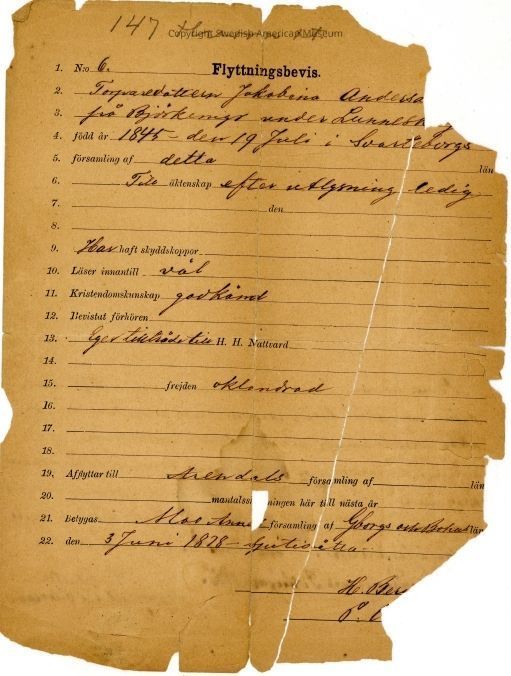 147
Copyright Swedish American Museum
1. N:o 6. Flyttningsbevis.
2. Torparedottern Jakobina Anders
3. från Björkemyr under Lunne
4. född år 1845 den 19 Juli i Svarteborgs
5. församling af detta län
6. Till äktenskap efter utlysning ledig
7. den
8.
9. Har haft skyddskoppor
10. Läser innantill väl
11. Kristendomskunskap godkänd
12. Bevistat förhören
13. Eger tillträde till H. H. Nattvard
14.
15. frejden oklandrad
16.
17.
18.
19. Afflyttar till församling af län
20. mantalss ningen här till nästa år
21. Betygas församling af Gborgs och Bohus län
22. den 3 Juni 1878
H. Ber
P.